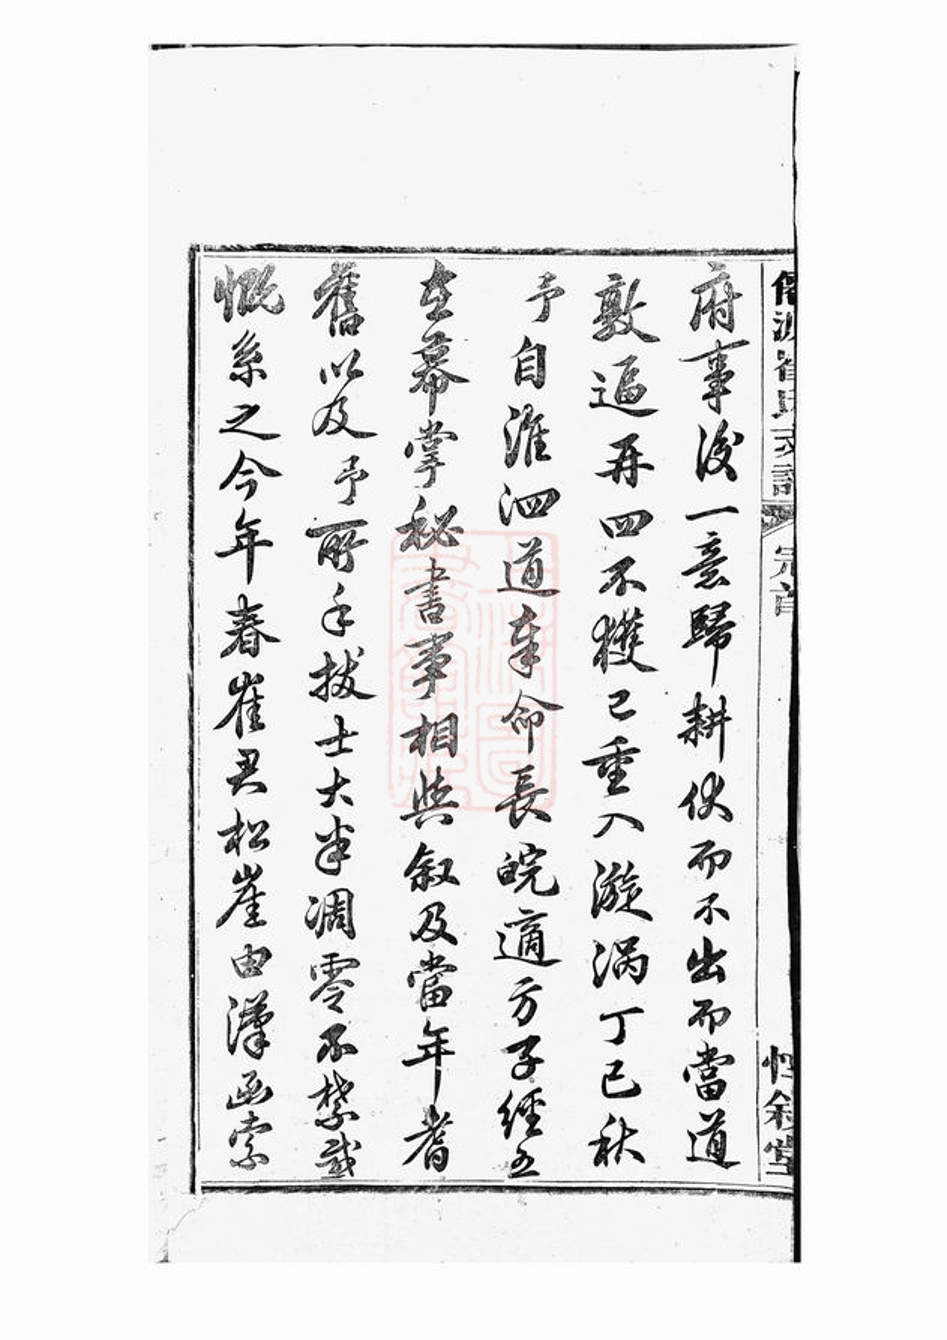 崔氏支譜 卷首 惇敘堂
府事後一意歸耕伏而不出而當道
敦逼再四不獲已重入漩渦丁巳秋
予自淮泗道奉命長皖適方子經五
在幕掌秘書事相與敘及當年耆
舊以及予所手拔士大半凋零不禁感
慨系之今年春崔君松崖由漢函索